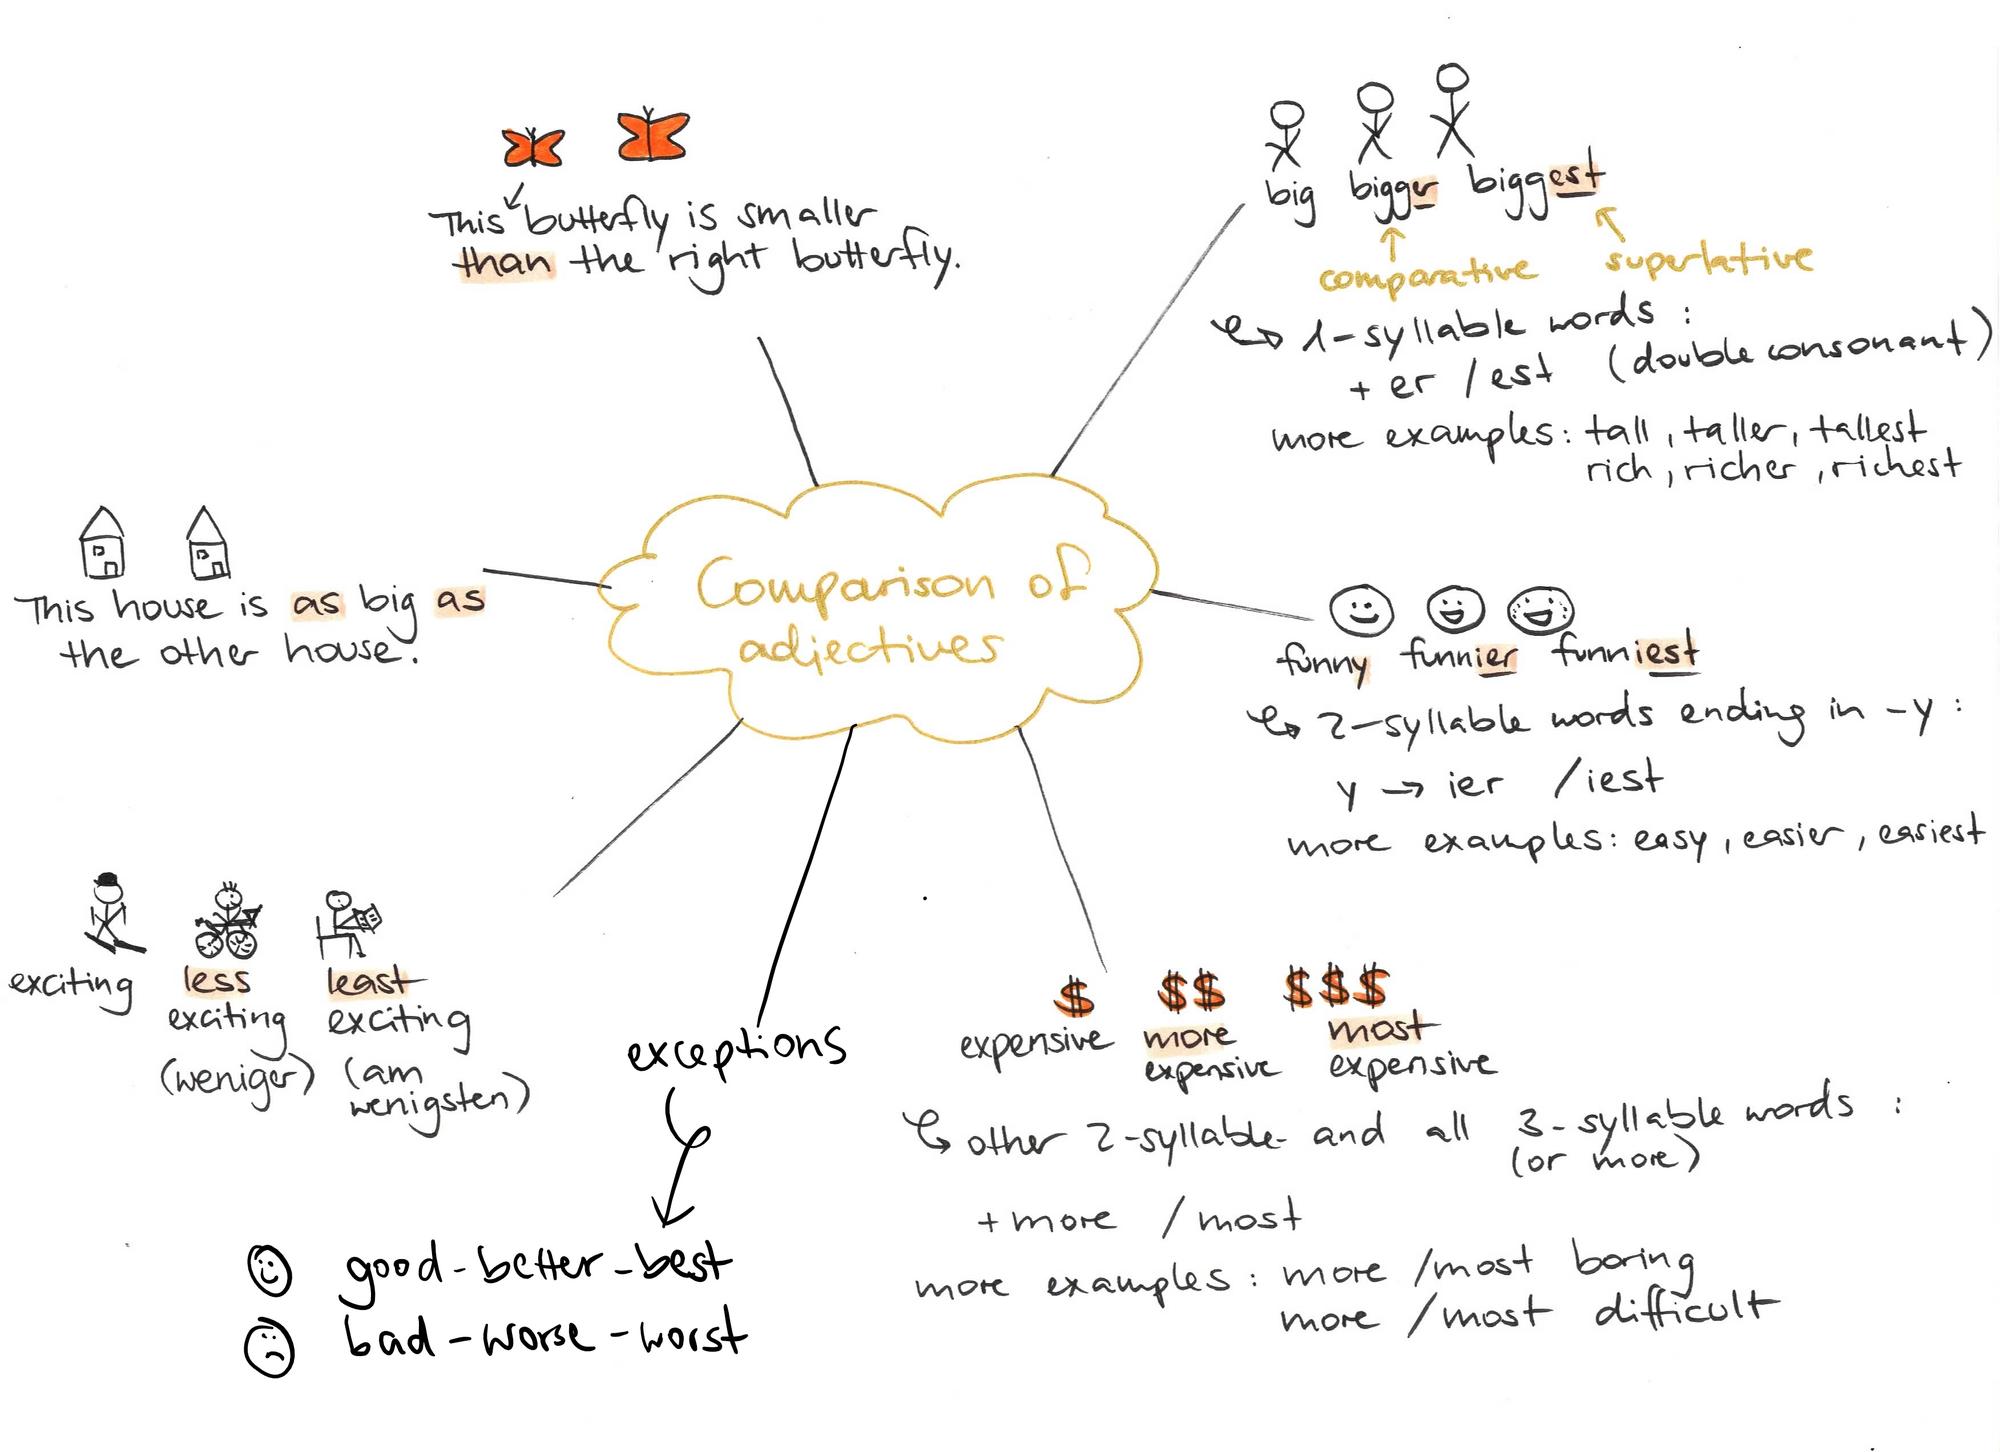 Comparison of
adjectives
This butterfly is smaller
than the right butterfly.
big bigger biggest
comparative superlative
1-syllable words :
+ er / est (double consonant)
more examples: tall, taller, tallest
rich, richer, richest
funny funnier funniest
2-syllable words ending in -y :
y → ier / iest
more examples: easy, easier, easiest
$ $$ $$$
expensive more most
expensive expensive
other 2-syllable- and all 3-syllable words :
(or more)
+ more / most
more examples : more / most boring
more / most difficult
exceptions
good - better - best
bad - worse - worst
exciting less least
exciting exciting
(weniger) (am
wenigsten)
This house is as big as
the other house.